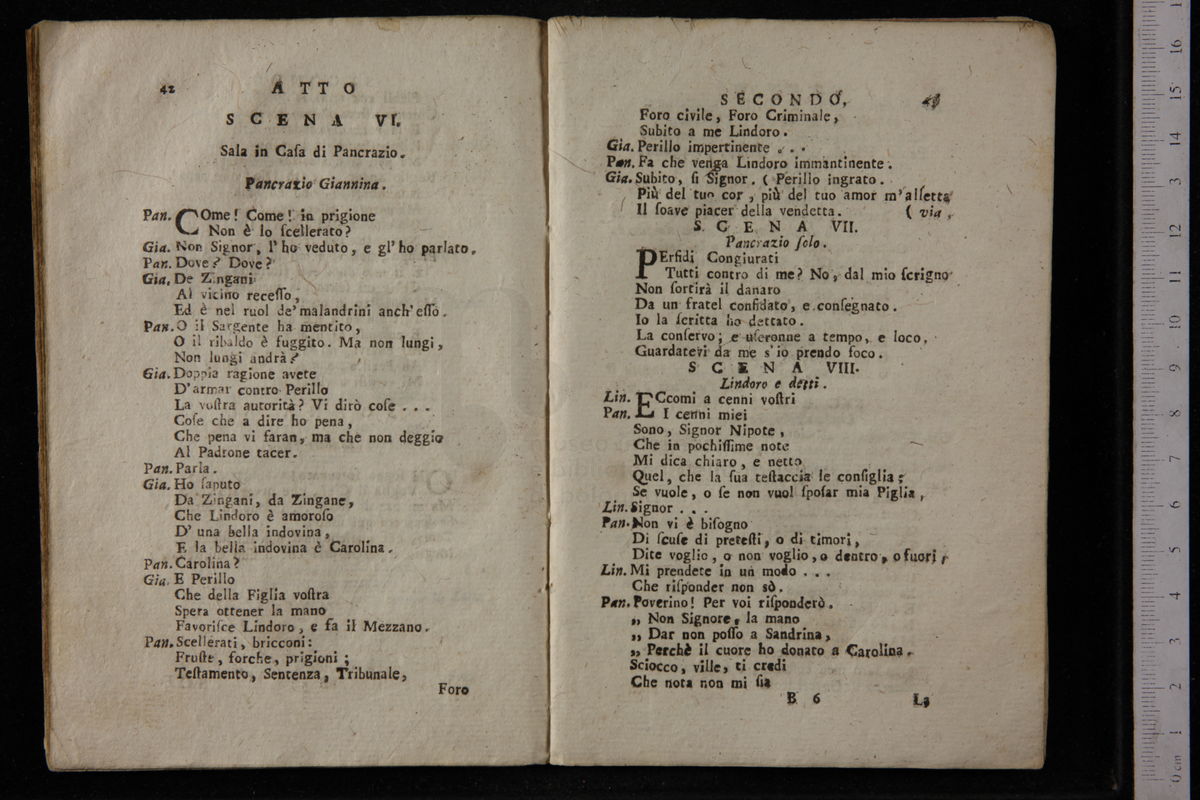 42 ATTO
SCENA VI.
Sala in Caſa di Pancrazio.
Pancrazio Giannina.
Pan. COme! Come! in prigione
Non è lo ſcellerato?
Gia. Non Signor, l'ho veduto, e gl'ho parlato.
Pan. Dove? Dove?
Gia. De Zingani
Al vicino receſſo,
Ed è nel ruol de' malandrini anch'eſſo.
Pan. O il Sargente ha mentito,
O il ribaldo è fuggito. Ma non lungi,
Non lungi andrà?
Gia. Doppia ragione avete
D'armar contro Perillo
La voſtra autorità? Vi dirò coſe . . .
Coſe che a dire ho pena,
Che pena vi faran, ma che non deggio
Al Padrone tacer.
Pan. Parla.
Gia. Ho ſaputo
Da Zingani, da Zingane,
Che Lindoro è amoroſo
D' una bella indovina,
E la bella indovina è Carolina.
Pan. Carolina?
Gia. E Perillo
Che della Figlia voſtra
Spera ottener la mano
Favoriſce Lindoro, e fa il Mezzano.
Pan. Scellerati, bricconi:
Fruſte, forche, prigioni;
Teſtamento, Sentenza, Tribunale,
Foro
SECONDO,
Foro civile, Foro Criminale,
Subito a me Lindoro.
Gia. Perillo impertinente . . .
Pan. Fa che venga Lindoro immantinente.
Gia. Subito, ſi Signor. ( Perillo ingrato.
Più del tuo cor, più del tuo amor m'alletta
Il ſoave piacer della vendetta. ( via,
SCENA VII.
Pancrazio ſolo.
PErfidi Congiurati
Tutti contro di me? No, dal mio ſcrigno
Non ſortirà il danaro
Da un fratel confidato, e conſegnato.
Io la ſcritta ho dettato.
La conſervo; e uſeronne a tempo, e loco,
Guardatevi da me s'io prendo foco.
SCENA VIII.
Lindoro e detti.
Lin. ECcomi a cenni voſtri
Pan. I cenni miei
Sono, Signor Nipote,
Che in pochiſſime note
Mi dica chiaro, e netto
Quel, che la ſua teſtaccia le conſiglia;
Se vuole, o ſe non vuol ſpoſar mia Piglia,
Lin. Signor . . .
Pan. Non vi è biſogno
Di ſcuſe di preteſti, o di timori,
Dite voglio, o non voglio, o dentro, o fuori,
Lin. Mi prendete in un modo . . .
Che riſponder non sò.
Pan. Poverino! Per voi riſponderò.
„ Non Signore, la mano
„ Dar non poſſo a Sandrina,
„ Perchè il cuore ho donato a Carolina.
Sciocco, ville, ti credi
Che nota non mi ſia
B 6 La
0 cm 1 2 3 4 5 6 7 8 9 10 11 12 13 14 15 16